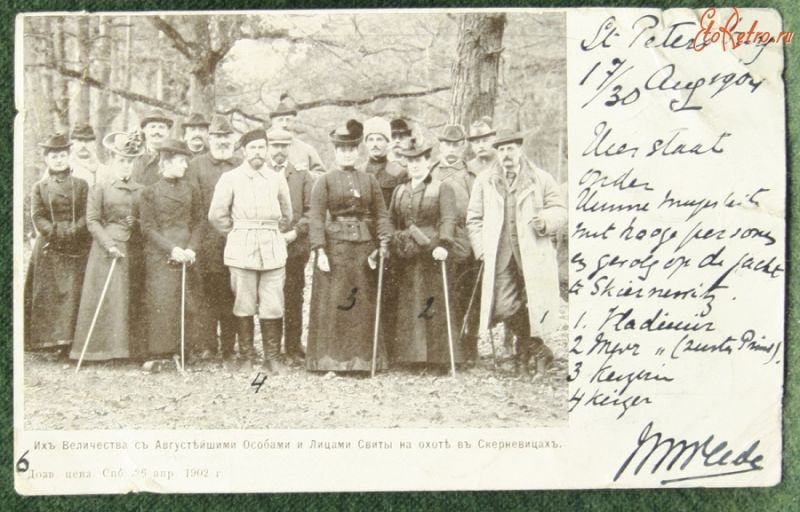 St Petersburg
17/30 Aug 1904
Hier staat
onder
Hunne Majesteit
met hooge personen
en gevolg op de jacht
te Skiernewitz.
1. Vladimir
2 Mevr " (zuster Prins).
3 Keizerin
4 Keizer
3
2
1
4
Ихъ Величества съ Августѣйшими Особами и Лицами Свиты на охотѣ въ Скерневицахъ.
6
Дозв. ценз. Спб. 26 апр. 1902 г.
EtoRetro.ru